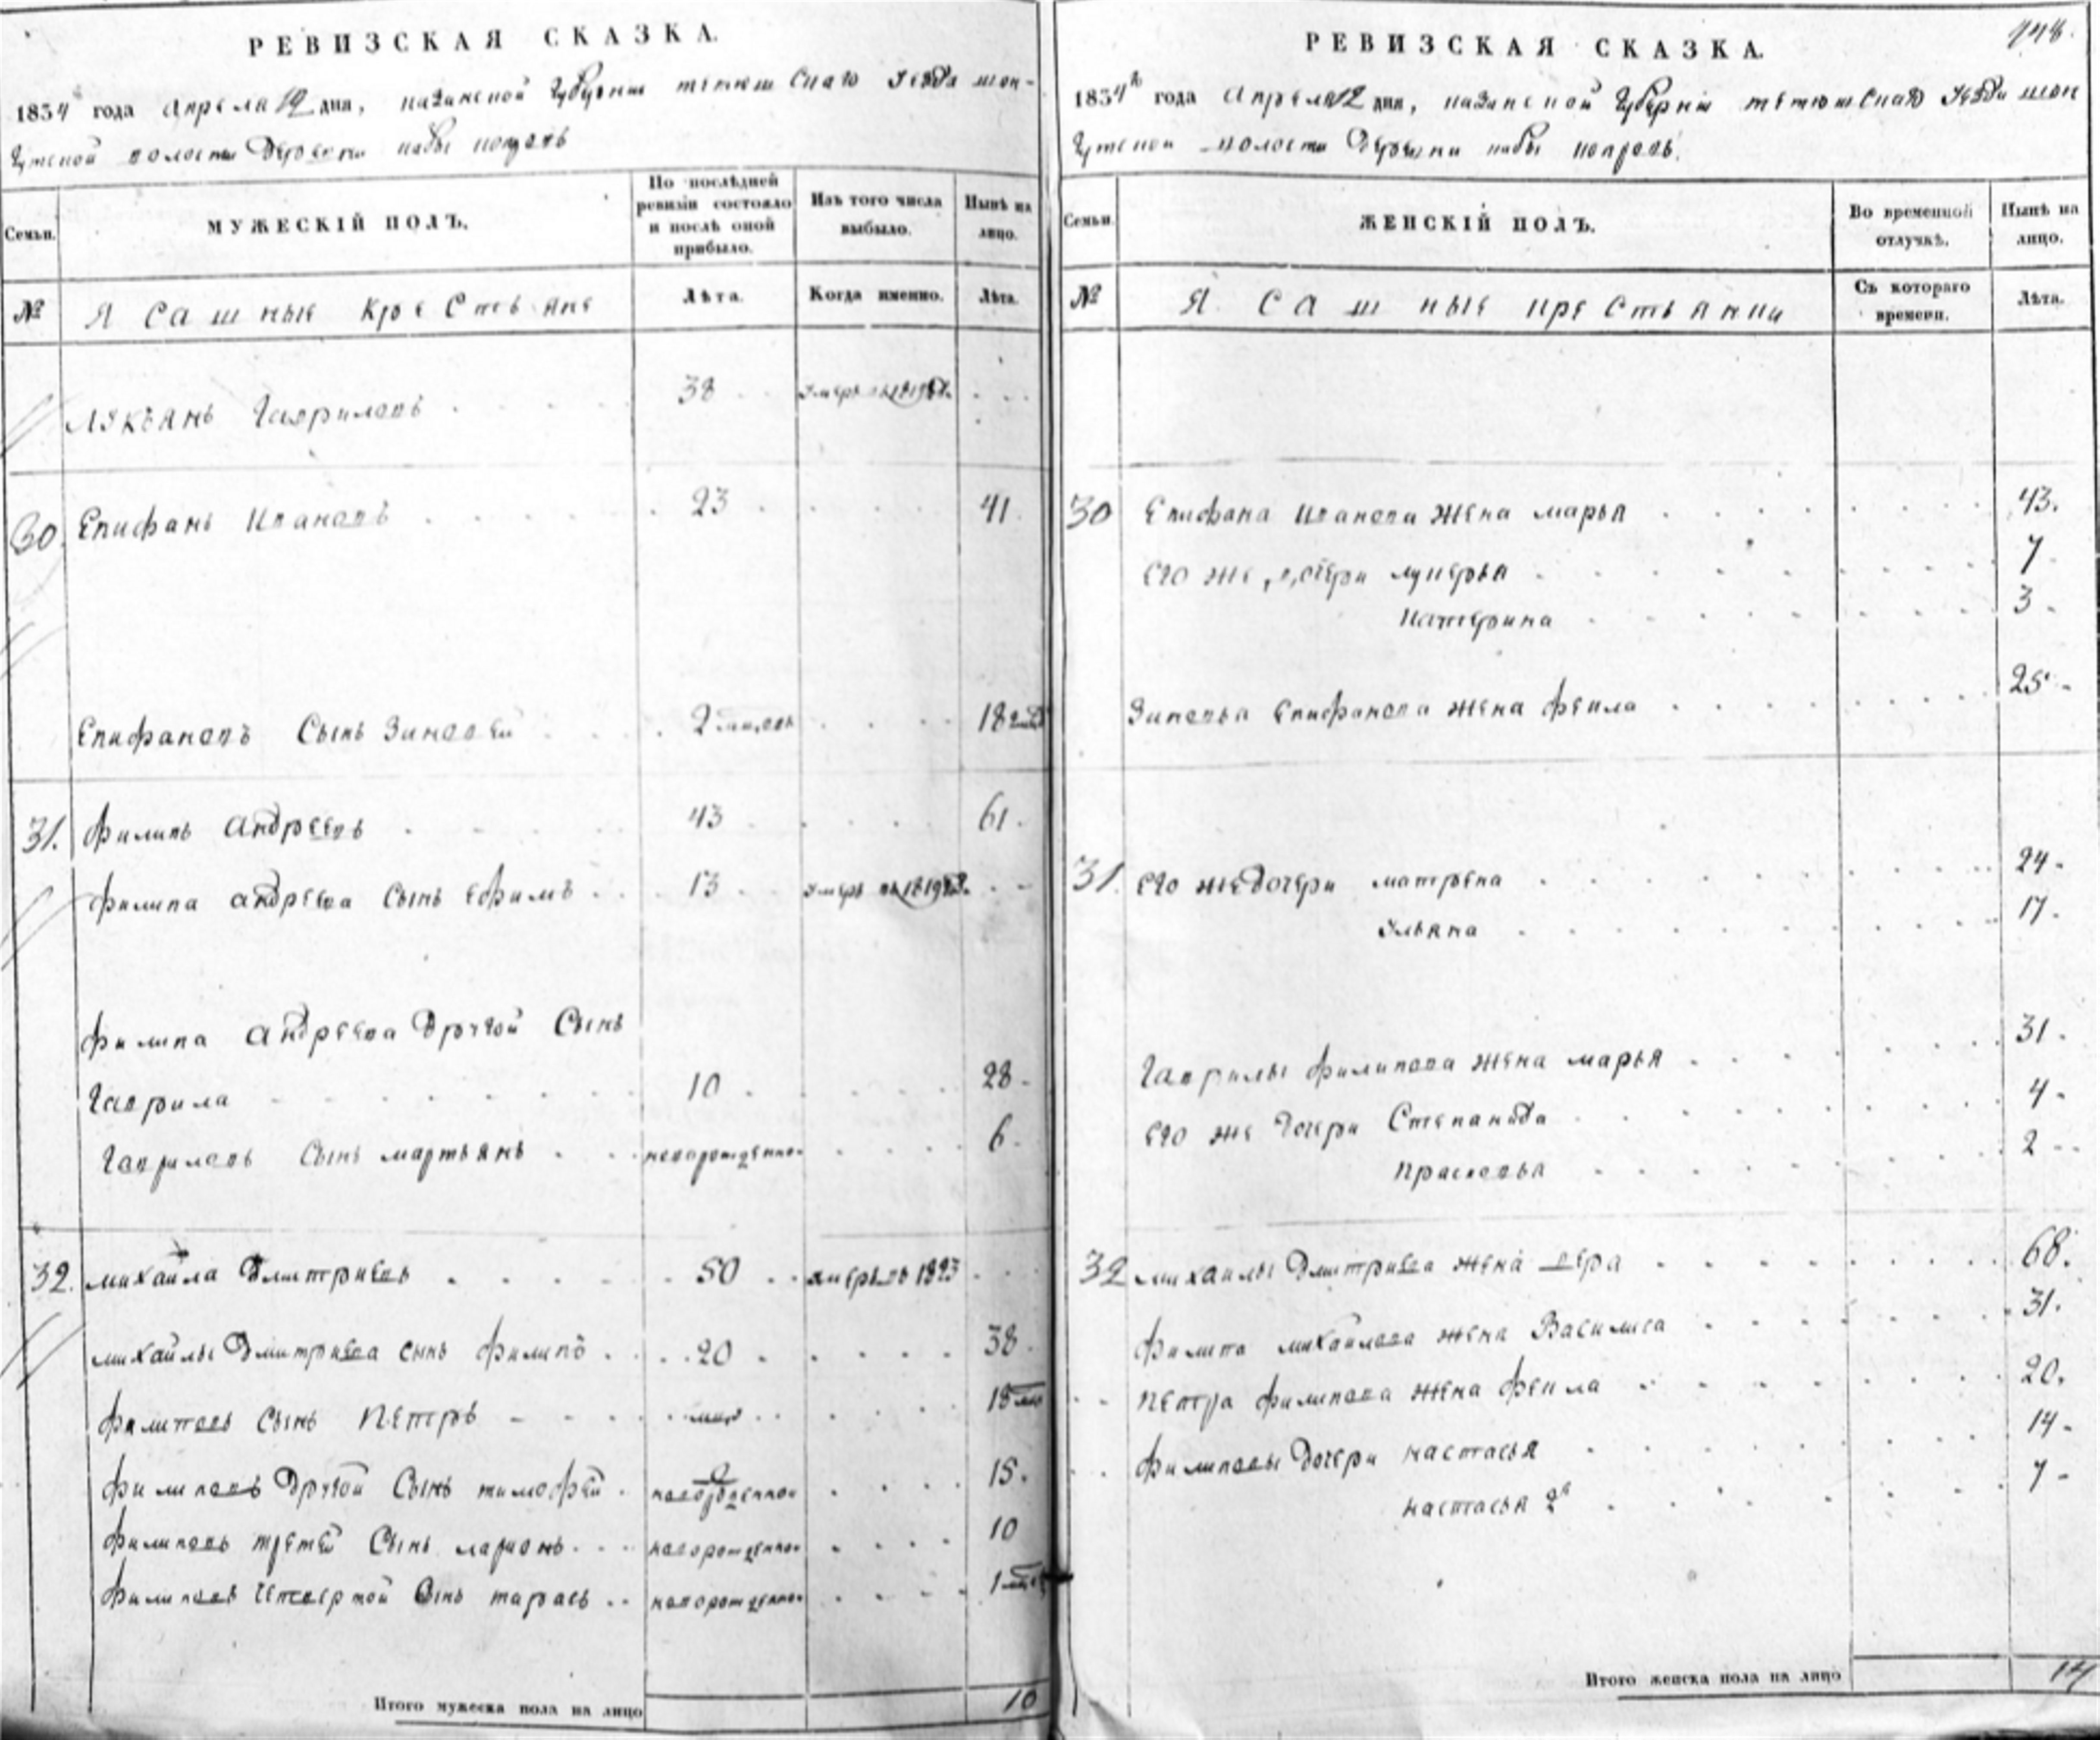 РЕВИЗСКАЯ СКАЗКА.
1834 года Апреля 12 дня, казанской Губернии тетюшскаго уезда
волости Деревни
Семьи.
МУЖЕСКІЙ ПОЛЪ.
По послѣдней ревизіи состояло и послѣ оной прибыло.
Изъ того числа выбыло.
Нынѣ на лицо.
№
Ясашные крестьяне
Лѣта.
Когда именно.
Лѣта.
Лукьянъ Гавриловъ 38 умеръ въ 1819
30. Епифанъ Ивановъ 23 41
Епифановъ сынъ Зиновей 2 18
31. Филипъ андреевъ 43 61
Филипа андреева сынъ ефимъ 13 умеръ въ 1819
Филипа андреева другой сынъ
Гаврила 10 28
Гавриловъ сынъ мартьянъ новорожденной 6
32. михаила дмитриевъ 50 умеръ въ 1823
михайлы дмитриева сынъ филипъ 20 38
филиповъ сынъ петръ 18
филиповъ другой сынъ тимофей новорожденной 15
филиповъ третей сынъ ларионъ новорожденной 10
филиповъ четвертой сынъ тарасъ новорожденной 1
Итого мужеска пола на лицо 10
148.
РЕВИЗСКАЯ СКАЗКА.
1834 года Апреля 12 дня, казанской Губерніи тетюшскаго уезда
волости деревни
Семьи.
ЖЕНСКІЙ ПОЛЪ.
Во временной отлучкѣ.
Нынѣ на лицо.
№
Ясашные крестьянки
Съ котораго времени.
Лѣта.
30 Епифана Иванова жена марья 43.
его же дочери лукерья 7
катерина 3
Зиновья епифанова жена фекла 25
31. его же дочери матрена 24
ульяна 17
Гаврилы филипова жена марья 31
его же дочери Степанида 4
прасковья 2
32 михайлы дмитриева жена вера 68.
филипа михайлова жена Василиса 31.
петра филипова жена фекла 20.
филиповы дочери настасья 14
настасья 2я 7
Итого женска пола на лицо 14